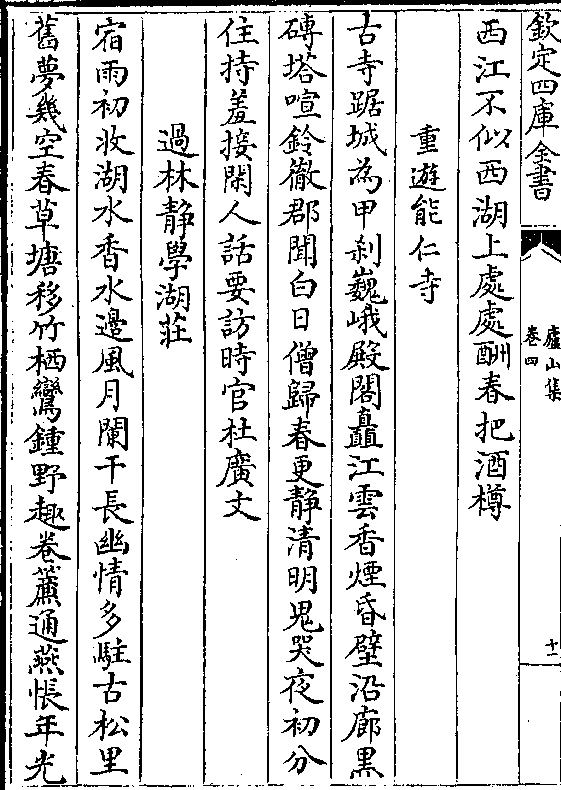 欽定四庫全書
廬山集
卷四
十一
西江不似西湖上處處酬春把酒樽
重遊能仁寺
古寺踞城為甲刹巍峨殿閣矗江雲香煙昏壁沿廊黑
磚塔喧鈴徹郡聞白日僧歸春更静清明鬼哭夜初分
住持羞接閑人話要訪時官杜廣文
過林静學湖莊
宿雨初收湖水香水邊風月闌干長幽情多駐古松里
舊夢幾空春草塘移竹栖鸞鍾野趣卷簾通燕悵年光